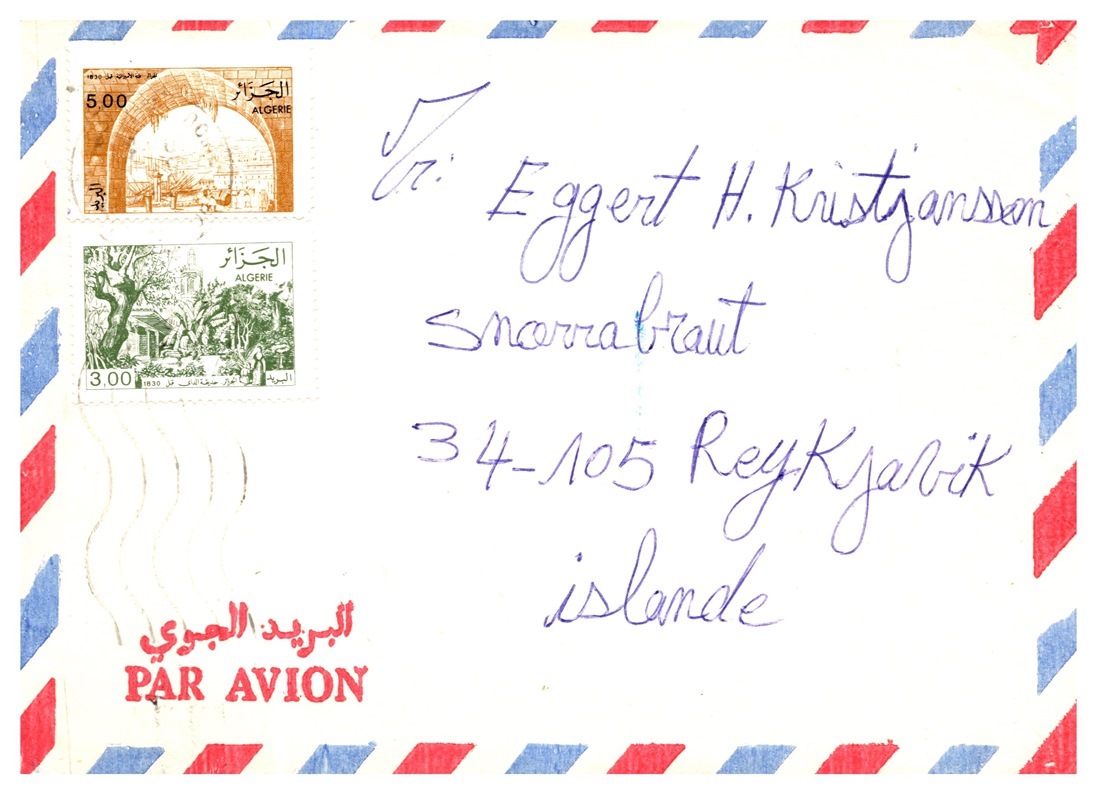 5.00
الجزائر
ALGERIE
الجزائر
ALGERIE
3.00
1830 الجزائر حديقة الداي قبل
البريد
Eggert H. Kristjansson
Snorrabraut
34-105 Reykjavik
islande
البريد الجوي
PAR AVION